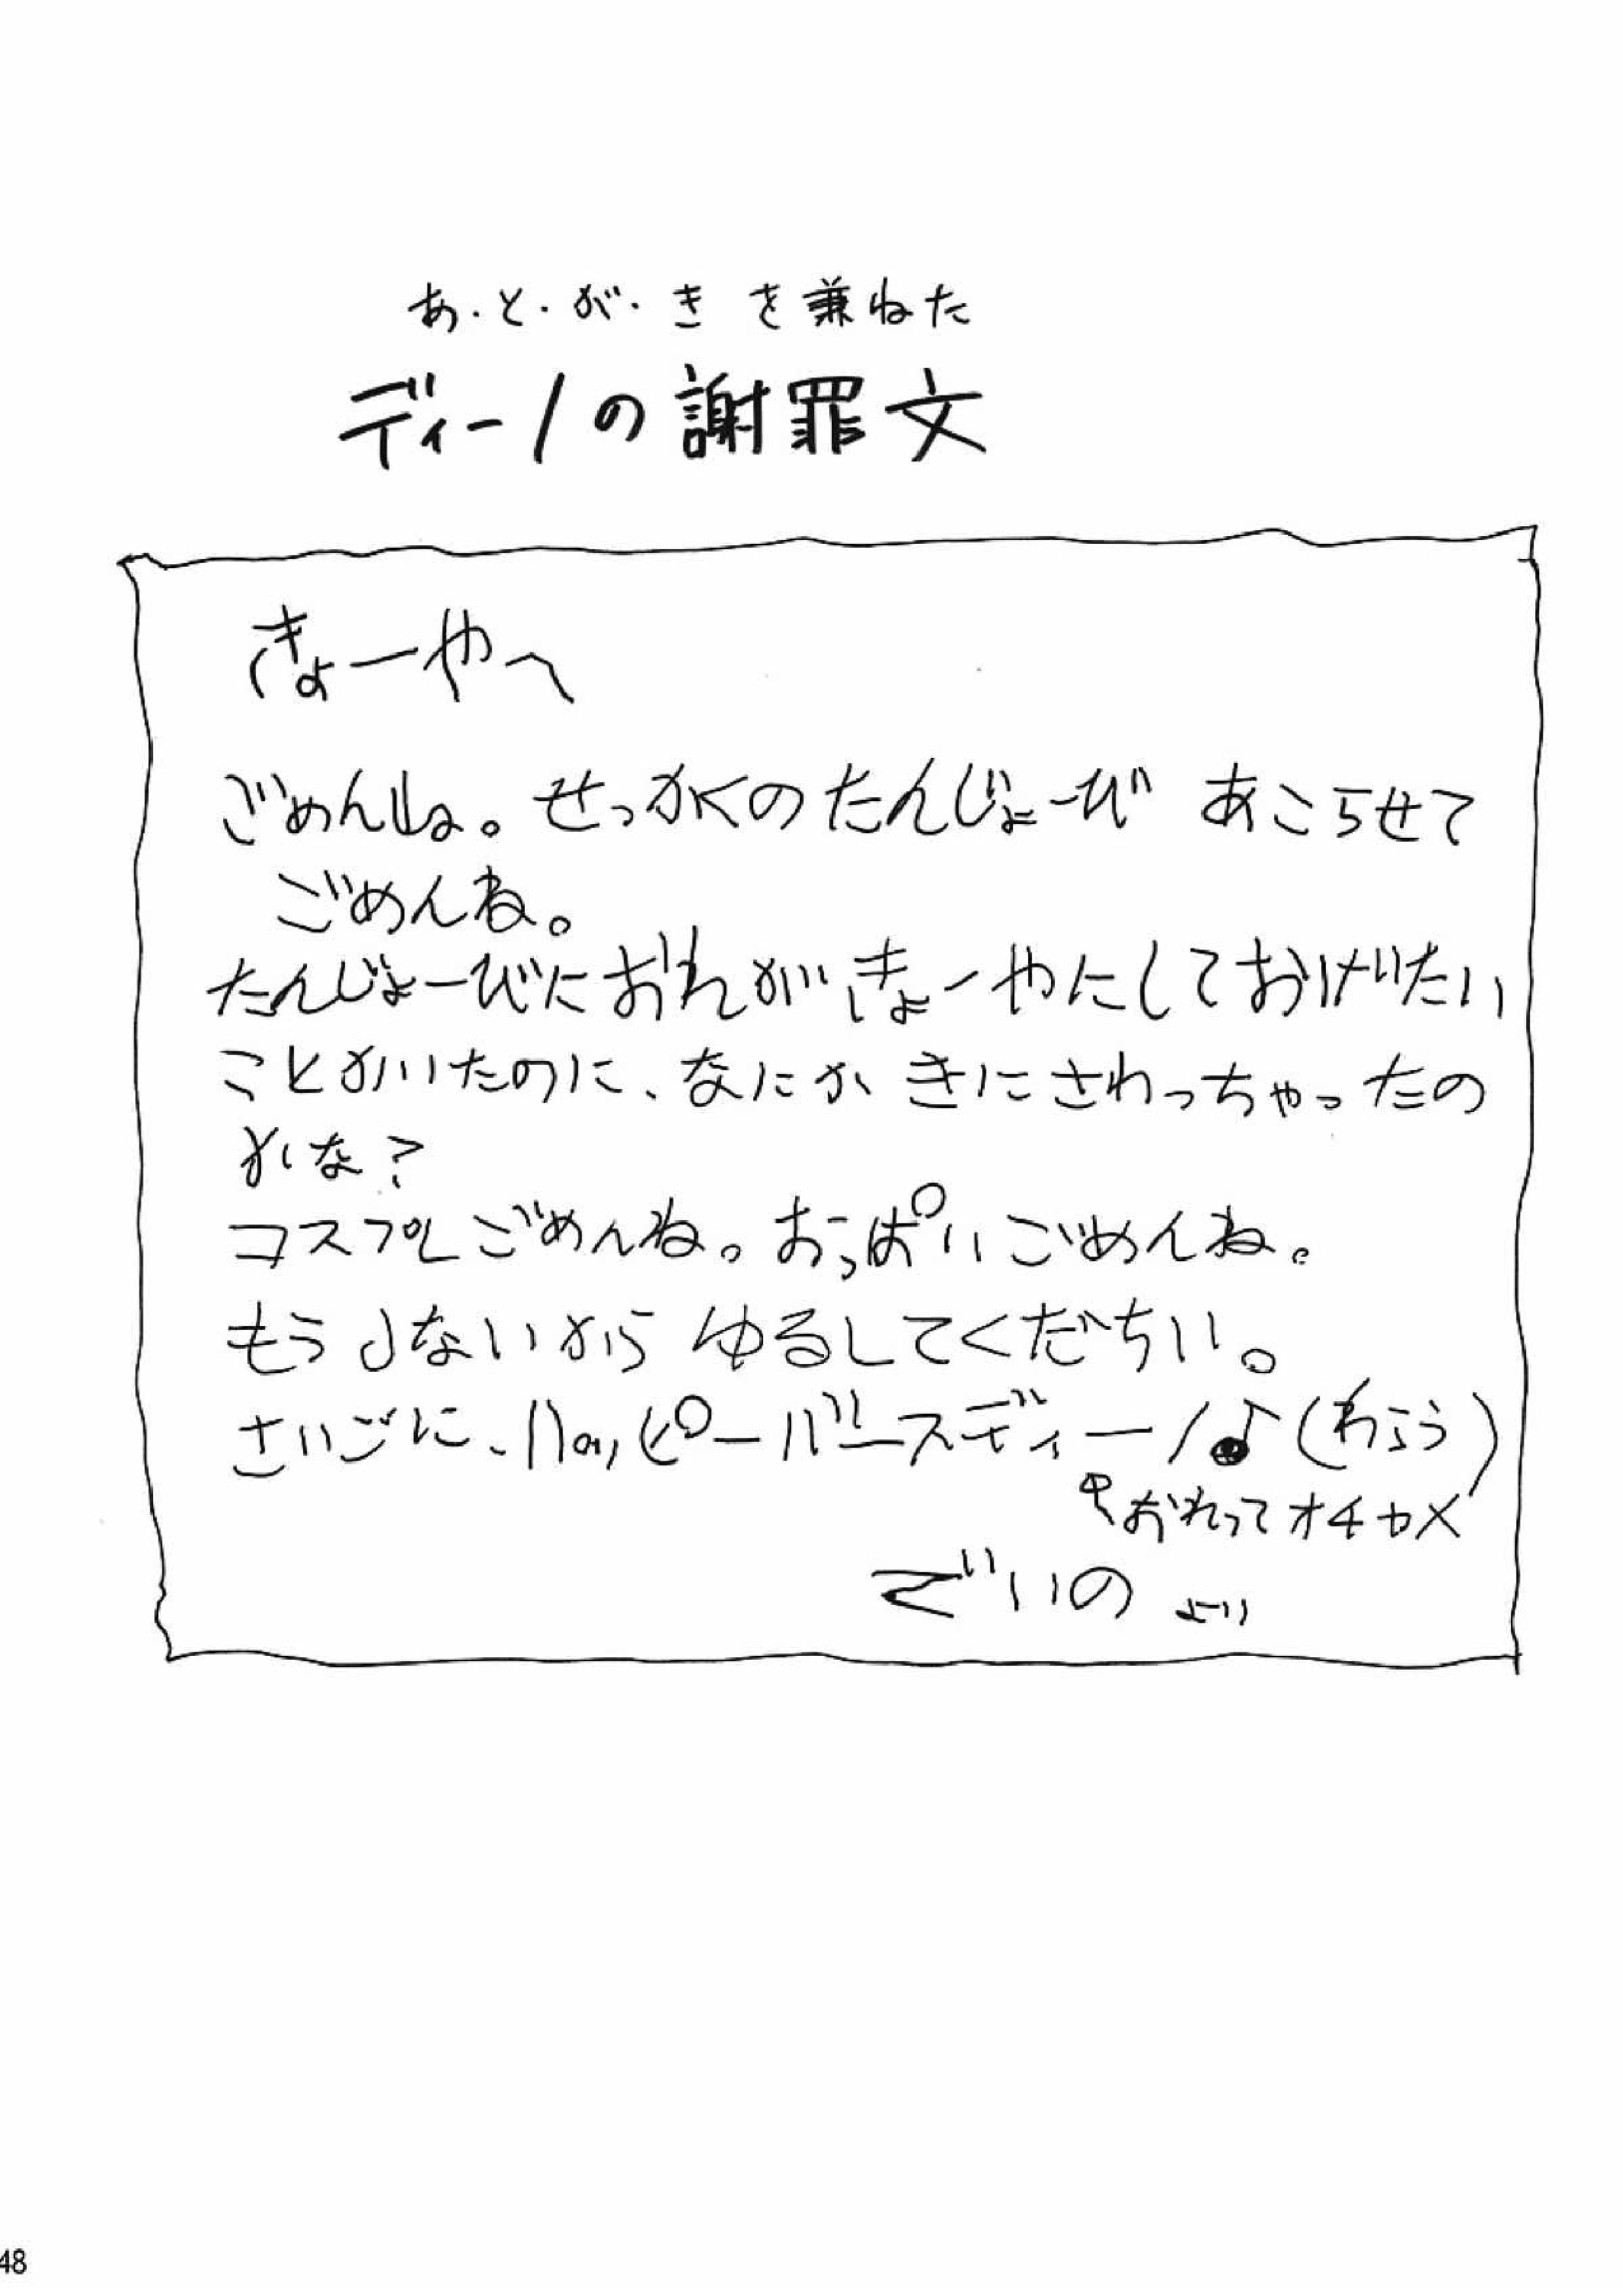 あ・と・が・き を兼ねた
ディーノの謝罪文
きょーやへ
ごめんね。せっかくのたんじょーび あこらせて
ごめんね。
たんじょーびにおれがきょーやにしておげたい
ことかいたのに、なにか きにさわっちゃったの
かな?
コスプレごめんね。おっぱいごめんね。
もうしないから ゆるしてくだちい。
さいごに、ハッピーバースディーノ♪(わらう)
おれってオチャメ
でいの より
48